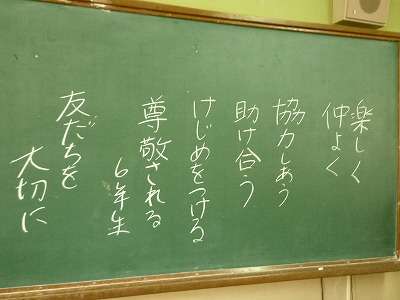 楽しく
仲よく
協力しあう
助け合う
けじめをつける
尊敬される
6年生
友だちを
大切に